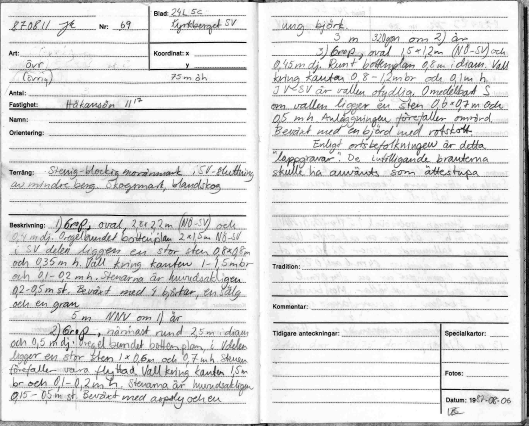 870811 Nr: 69
Blad: 24L 5c
Kyrkberget SV
Koordinat: x
y
75 m öh
Art:
övr
(övrig)
Antal:
Fastighet: Håkansön 11¹⁷
Namn:
Orientering:
Terräng: Stenig-blockig moränmark i SV-sluttning
av mindre berg. Skogsmark, blandskog
Beskrivning: 1) Grop, oval, 2,8x2,2 m (NO-SV) och
0,4 m dj. Oregelbundet bottenplan 2x1,5 m NO-SV
i SV delen ligger en stor sten 0,8x0,8 m
och 0,35 m h. Vall kring kanten 1-1,5 m br
och 0,1-0,2 m h. Stenarna är huvudsakligen
0,2-0,5 m st. Bevuxt med 4 björkar, en sälg
och en gran
5 m NNV om 1) är
2) Grop, närmast rund 2,5 m i diam
och 0,5 m dj. Oregelbundet bottenplan, i V delen
ligger en stor sten 1x0,6 m och 0,7 m h. Stenen
förefaller vara flyttad. Vall kring kanten 1,5 m
br och 0,1-0,2 m h. Stenarna är huvudsakligen
0,15-0,5 m st. Bevuxt med och en
ung björk.
3 m om 2) är
3) Grop, oval 1,5x1,2 m (NO-SV) och
0,45 m dj. Runt bottenplan 0,8 m i diam. Vall
kring kanten 0,8-1,2 m br och 0,1 m h.
I V-SV är vallen otydlig. Omedelbart S
om vallen ligger en sten 0,6x0,7 m och
0,5 m h. Anläggningen förefaller omrörd.
Bevuxt med en björk med rotskott
Enligt ortsbefolkningen är detta
"lappgravar". De intilliggande branterna
skulle ha använts som ättestupa
Tradition:
Kommentar:
Tidigare anteckningar:
Specialkartor:
Fotos:
Datum: 1987-08-06